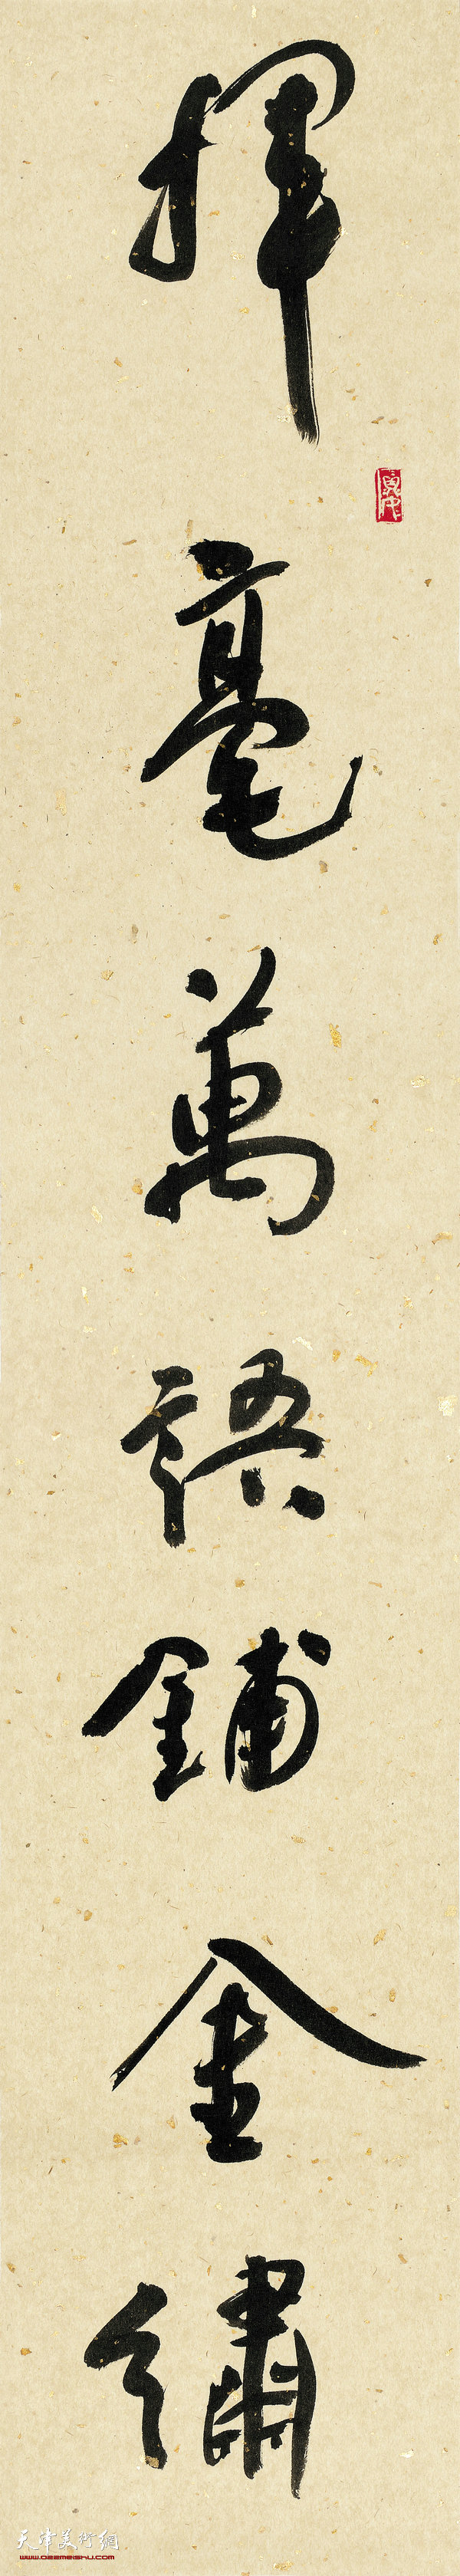 揮毫萬語鋪金繡
天津美術網
www.022meishu.com